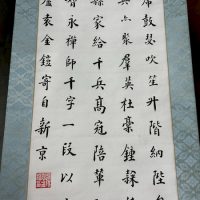 席鼓瑟吹笙升階納陛
典亦聚羣英杜稾鍾隸
縣家給千兵高冠陪輦
智永禪師千字一段以
袁金鎧寄自新京